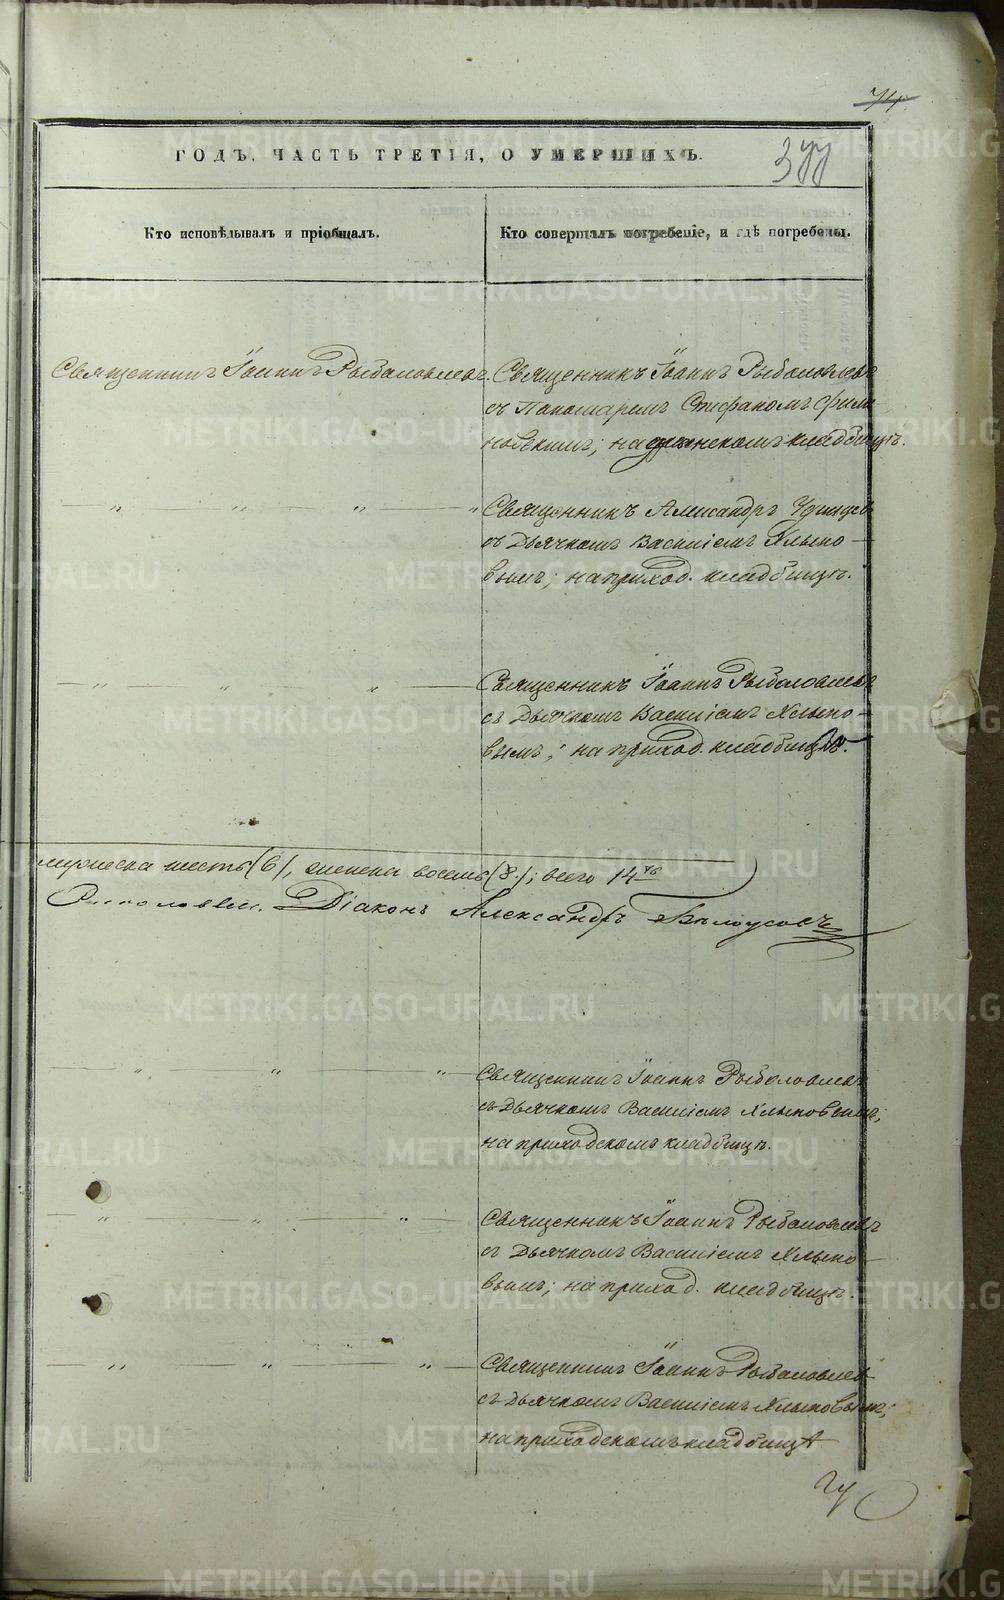 74
ГОДЪ, ЧАСТЬ ТРЕТІЯ, О УМЕРШИХЪ.
377
Кто исповѣдывалъ и пріобщалъ.
Кто совершалъ погребеніе, и гдѣ погребены.
Священникъ Іоаннъ Рыболовлевъ.
Священникъ Іоаннъ Рыболовлевъ
съ Пономаремъ Стефаномъ
новскимъ; на кладбищѣ.
Священникъ Александръ
съ Дьячкомъ Василіемъ Хлыно-
вымъ; на приход. кладбищѣ.
Священникъ Іоаннъ Рыболовлевъ
съ Дьячкомъ Василіемъ Хлыно-
вымъ; на приход. кладбищѣ.
мужеска шесть (6), женска восемь (8); всего 14
Рыболовлевъ. Діаконъ Александръ Бѣлоусовъ
Священникъ Іоаннъ Рыболовлевъ
съ Дьячкомъ Василіемъ Хлыновымъ;
на приходскомъ кладбищѣ.
Священникъ Іоаннъ Рыболовлевъ
съ Дьячкомъ Василіемъ Хлыно-
вымъ; на приход. кладбищѣ.
Священникъ Іоаннъ Рыболовлев
съ Дьячкомъ Василіемъ Хлыновымъ;
на приходскомъ кладбищѣ
METRIKI.GASO-URAL.RU